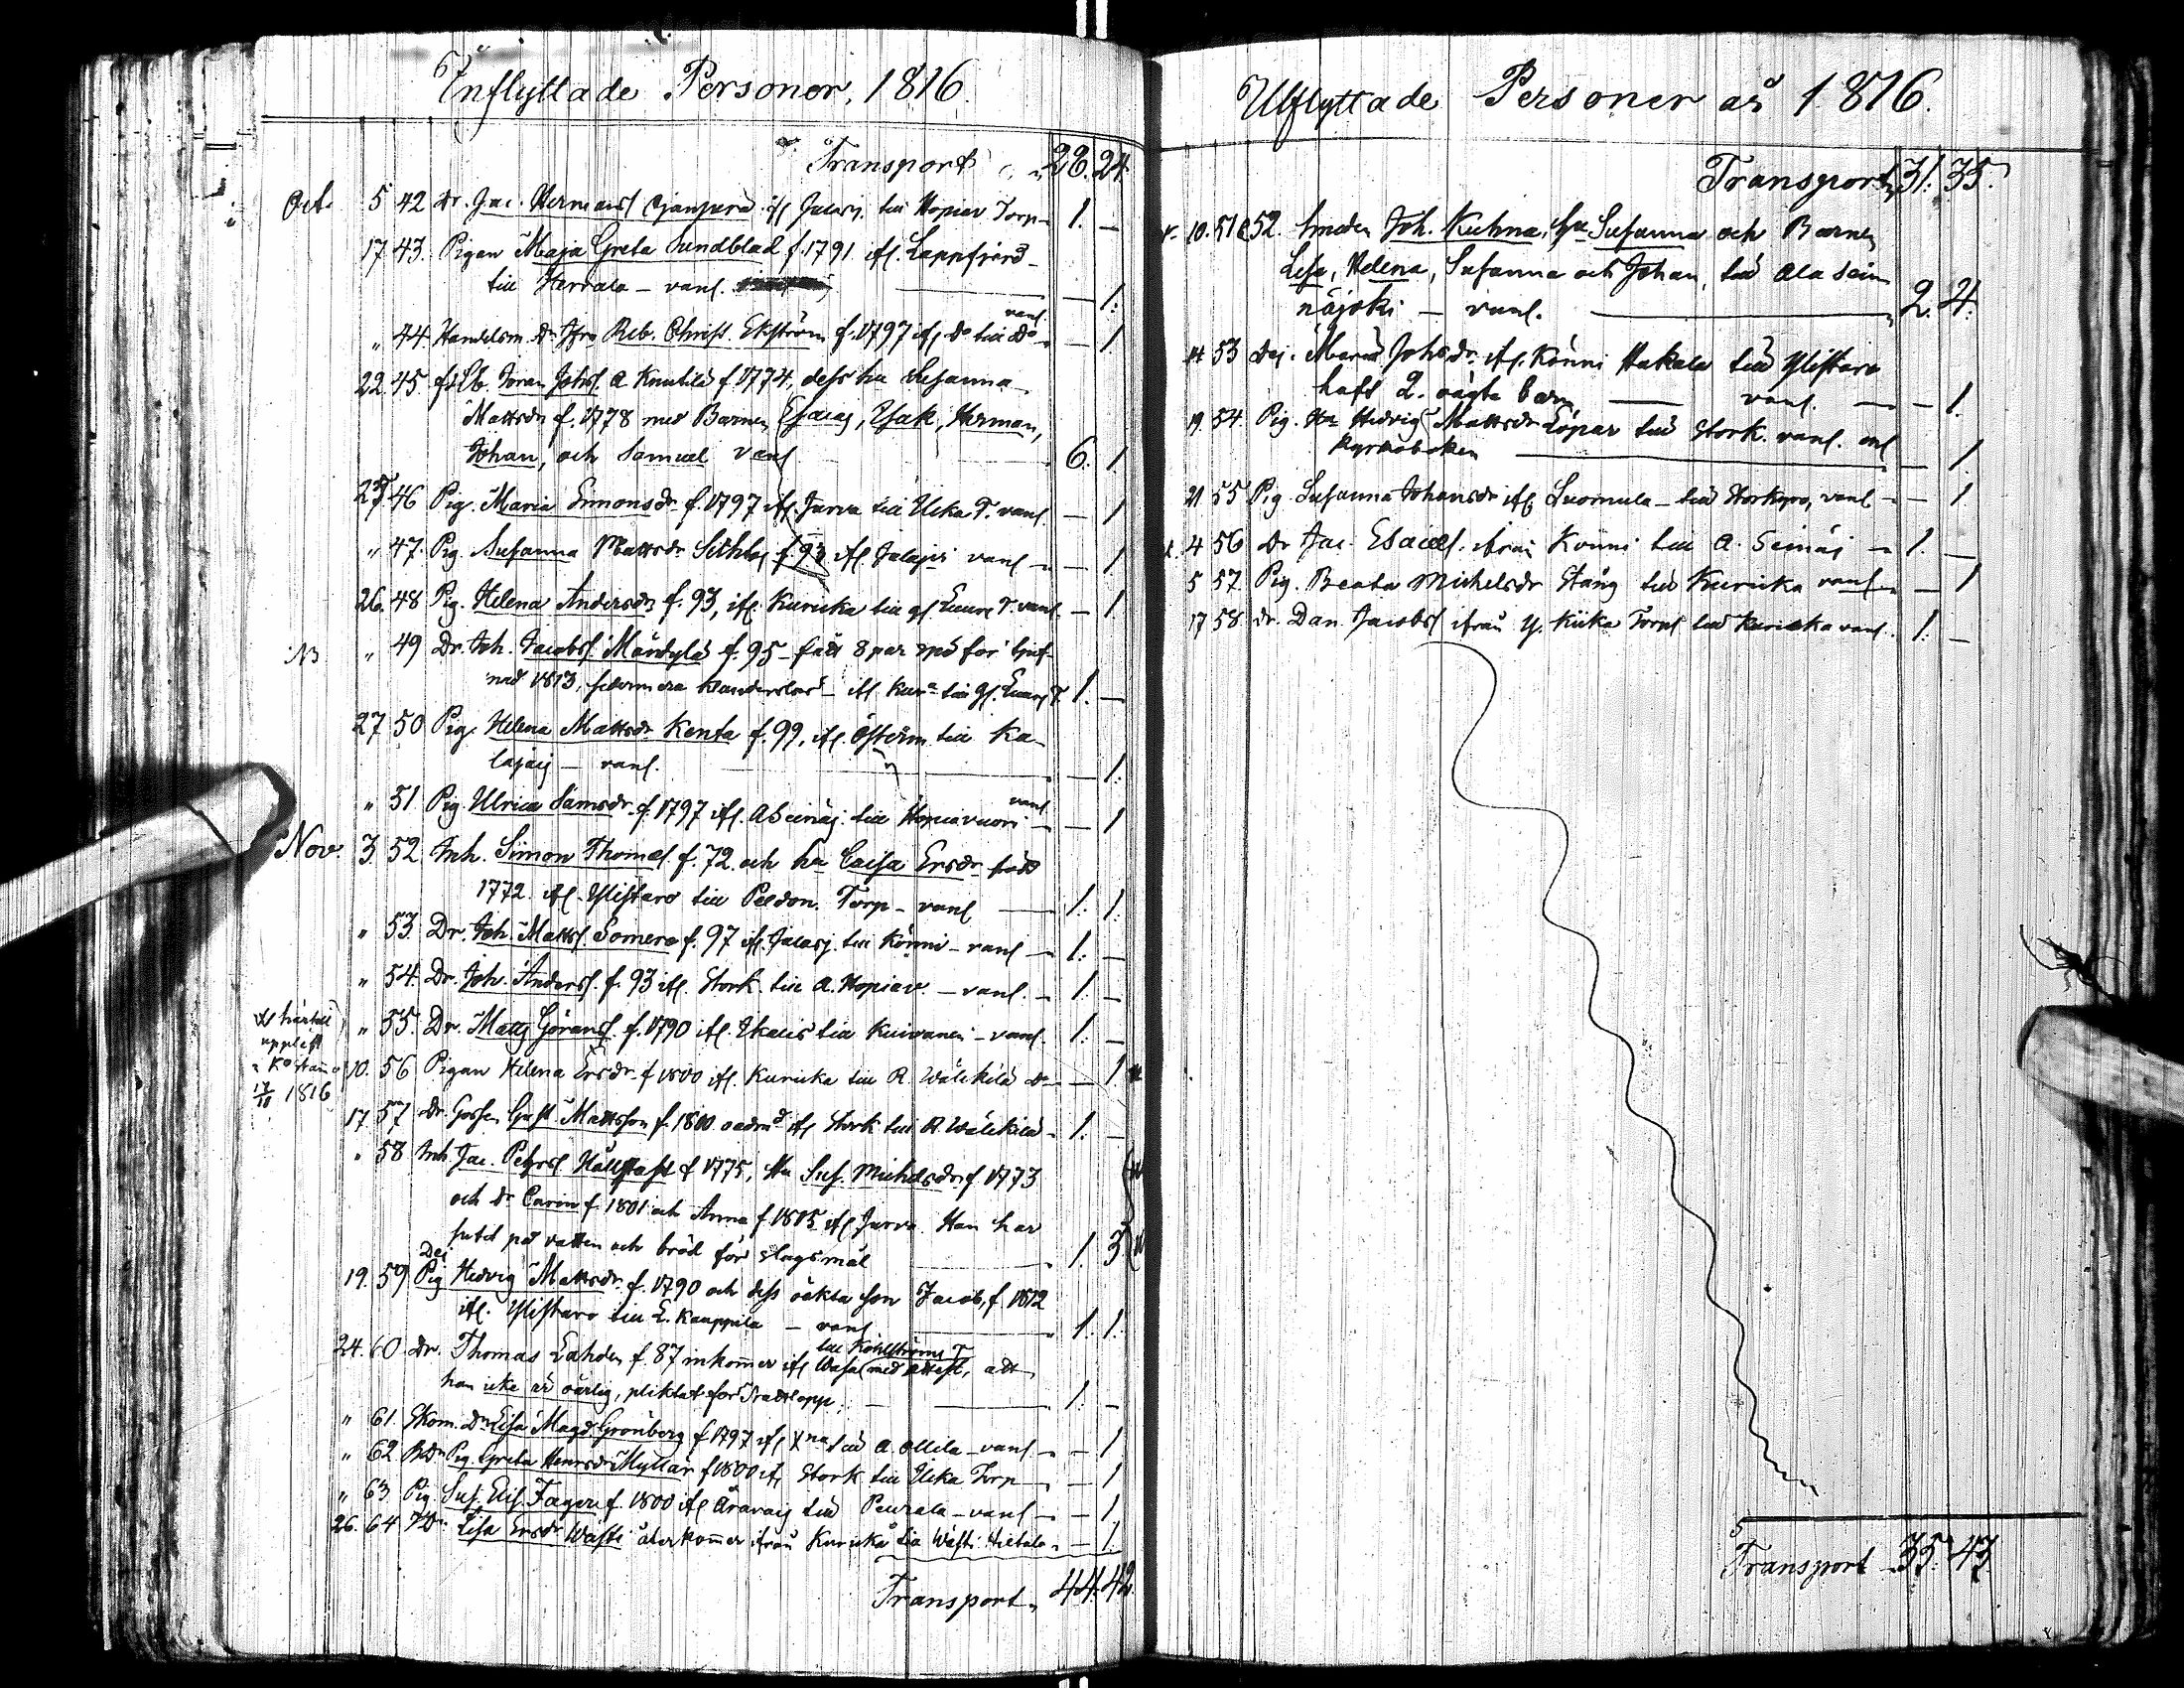 Inflyttade Personer, 1816.
Transport 28. 24.
Oct. 5 42 Dr. Jac. Hermansf ifl Jalasj. till Hopiav Torp 1. —
17 43. Pigan Maja Greta Sundblad f. 1791 ifl. Lappfjerd
till Herrala — vanl. — 1.
" 44. Handelsm. Dr. Jfru Reb. Christ. Ekström f. 1797 ifl Do till Do vanl — 1
22. 45. Göran Johsf. A Knuutila f. 1774, dess hu Susanna
Mattsdr f. 1778 med Barnen Esaias, Isak, Herman,
Johan, och Samuel vanl 6. 1
25. 46 Pig. Maria Simonsdr f. 1797 ifl. Jurva till Ucka T. vanl. — 1
" 47. Pig. Susanna Mattsdr f. 93 ifl Jalasjri vanl — 1
26. 48 Pig. Helena Andersdr f. 93, ifl. Kuricka till T. vanl. — 1
NB " 49 Dr. Joh. Jacobsf. Mändylä f. 95 — fått 8 par spö för tjuf-
nad 1813, sedermera klanderlös — ifl. Kura till T 1. —
27 50 Pig. Helena Mattsdr Kenta f. 99, ifl. Österm till Ka-
lajaij — vanl. — 1.
" 51 Pig. Ulrica Samsdr. f. 1797 ifl. A Seinäj. till Hopiavuori vanl — 1
Nov. 3 52 Inh. Simon Thomæs. f. 72. och hu Caisa Ersdr född
1772. ifl. Ylistaro till Peldon. Torp — vanl 1. 1.
" 53. Dr. Joh. Mattsf. Somero f. 97 ifl. Jalasj. till Könni — vanl 1. —
" 54. Dr. Joh. Andersf. f. 93 ifl. Stork. till A. Hopiav. — vanl. 1. —
" 55. Dr. Matts Göransf. f. 1790 ifl. Ikalis till Kuivanen — vanl. 1. —
härtill
uppläst
Kostämma
17/11 1816
10. 56 Pigan Helena Ersdr. f 1800 ifl. Kuricka till R. Wälikilä Do — 1.
17. 57 Dr. Gossen Gust. Mattsson f. 1800 ifl Stork till R. Wälikilä 1. —
" 58 Inh Jac. Petersf f 1775, Hu Sus. Michelsdr f. 1773
och Dr Carin f. 1801 och Anna f. 1815 ifl Jurva. Han har
sutit på vatten och bröd för slagsmål 1. 3
19. 59 Dej Pig Hedvig Mattsdr. f. 1790 och dess oäkta son Jacob, f. 1812
ifl. Ylistaro till L. Kauppila — vanl 1. 1.
24. 60. Dr. Thomas Lahden f. 87 inkommer ifl Wasa till Kohlströms T med attest, att
han icke är värlig, pliktat för 1. —
" 61. Skom. Dr Lisa Magd. Grönberg f 1797 ifl till A. Ollila — vanl — 1
" 62. Pig. Greta Henrsdr Myllär f 1800 ifl Stork till Ucka Torp — 1
" 63. Pig. Sus. Elis. Fager f. 1800 ifl till Peurala — vanl — 1
26. 64 Lisa Ersdr Wasti återkommer ifrån Kuricka till Wasti Hietala — 1.
Transport 44. 42.
Utflyttade Personer år 1816.
Transport 31. 35.
10. 51 & 52. Smeden Joh. Kuhna, hu Susanna och Barnen
Lisa, Helena, Susanna och Johan, till Ala Sein
näjoki — vanl. 2. 4.
14 53 Dej. Maria Johsdr. ifl. Könni Hakala till Ylistaro
haft 2. oägta barn vanl. — 1.
19. 54. Pig. Hedvig Mattsdr Löpar till Stork. vanl. enl
kyrkoboken — 1.
21 55 Pig. Susanna Johansdr ifl Luomula — till Storkyro, vanl — 1.
4 56 Dr Jac. Esaiæs. ifrån Könni till A. Seinäj 1. —
5 57. Pig. Beata Michelsdr Stång till Kuricka vanl — 1
17 58. Dr. Dan. Jacobsf ifrån Y. Kiika Torp till Kuricka vanl. 1. —
Transport 35. 43.